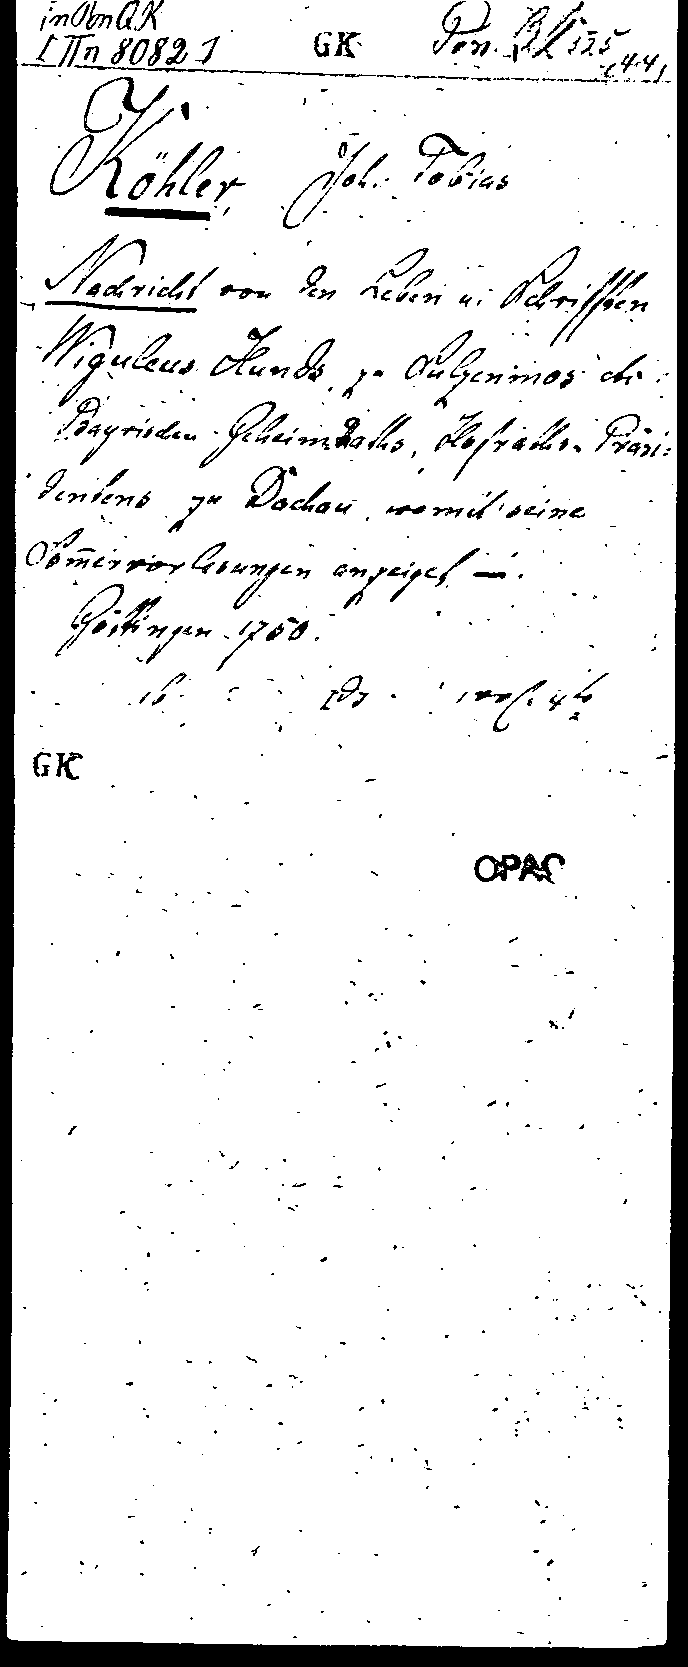 in Pon QK
[IIn 8082] GK Pon
(44)
Köhler, Joh. Tobias
Nachricht von den Leben u. Schrifften
Wiguleus Hunds, zu Sulzenmos
Bayrischen Geheim Raths, Hofraths Präsi-
dentens zu Dachau, womit seine
Sommervorlesungen anzeiget —.
Göttingen 1750.
GK
OPAC